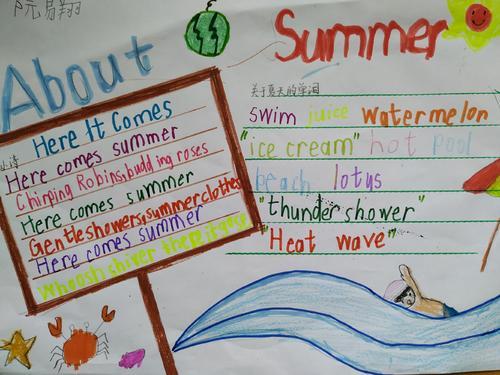 阮易翔
About
Summer
小诗
Here It Comes
Here comes summer
Chirping Robins, budding roses
Here comes summer
Gentle showers, summer clothes
Here comes summer
Whoosh shiver there it goes
关于夏天的单词
swim juice watermelon
"ice cream" hot pool
beach lotus
"thunder shower"
"Heat wave"